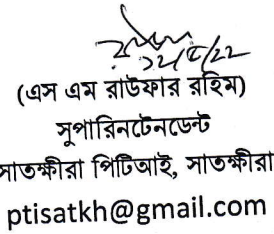 ১২/৫/২২
(এস এম রাউফার রহিম)
সুপারিনটেনডেন্ট
সাতক্ষীরা পিটিআই, সাতক্ষীরা
ptisatkh@gmail.com